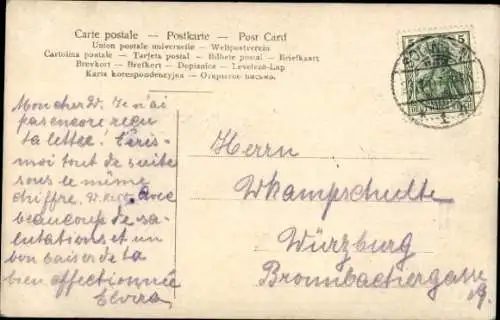 Carte postale – Postkarte – Post Card
Union postale universelle – Weltpostverein
Cartolina postale – Tarjeta postal – Bilhete postal – Briefkaart
Brevkort – Brefkort – Dopisnice – Levelező-Lap
Karta korespondencyjna – Открытое письмо.
5
Mon cher W. Je n'ai
pas encore reçu
ta lettre! Écris-
moi tout de suite
sous le même
chiffre. avec
beaucoup de sa-
lutations et un
bon baiser de ta
bien affectionnée
Elvira
Herrn
W Kampschulte
Würzburg
Brombachergasse